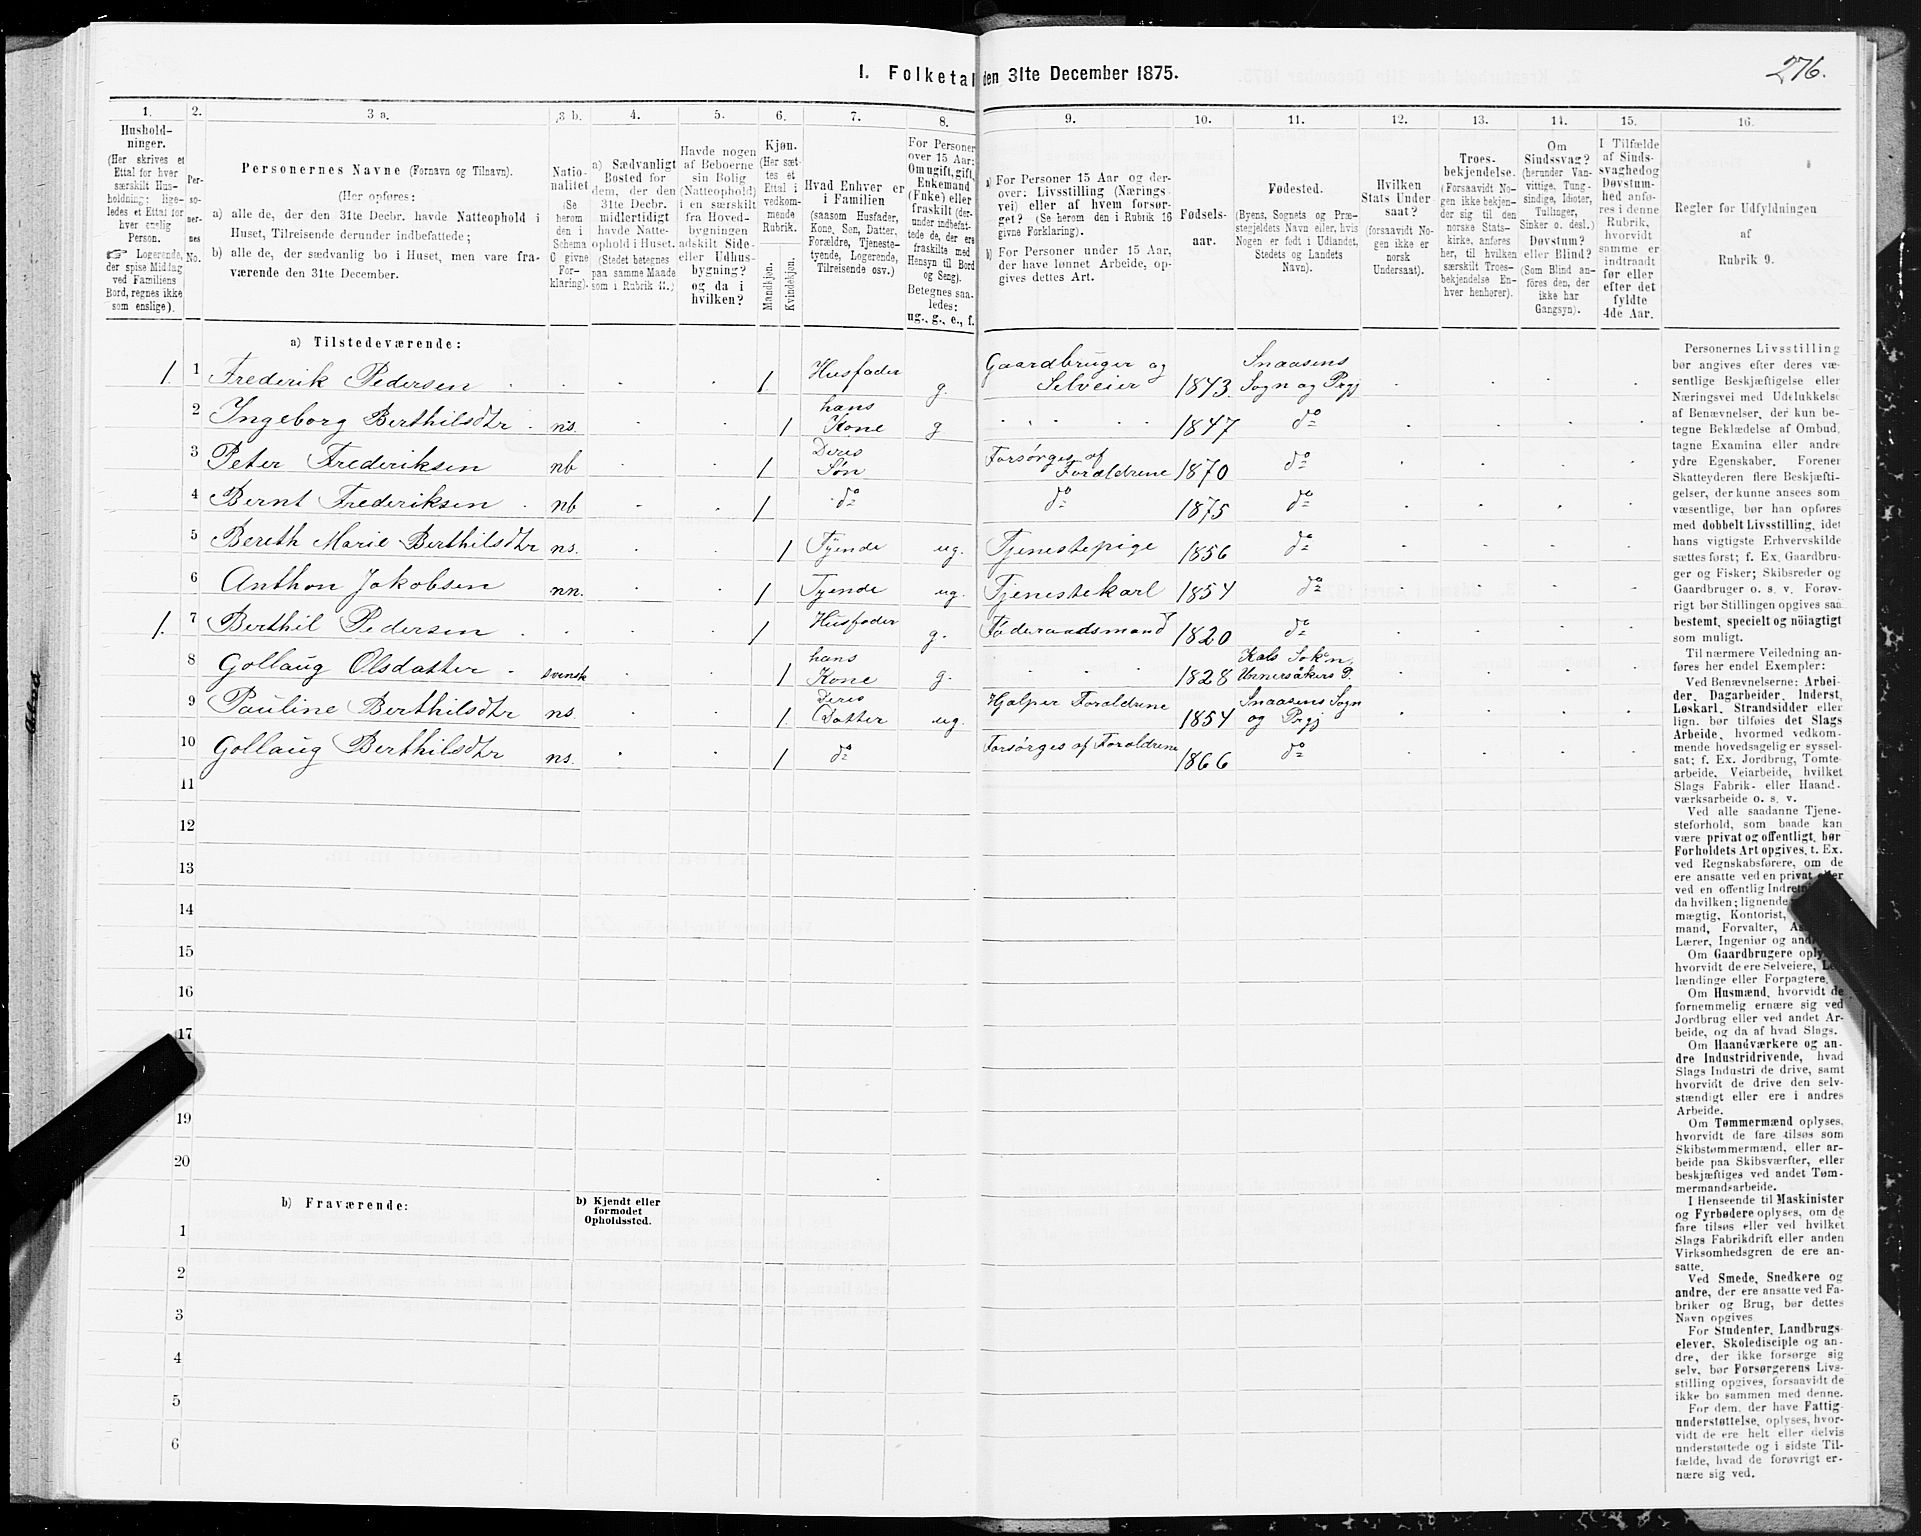 I. Folketal den 31te December 1875.
276.
1. 2. 3 a. 3 b. 4. 5. 6. 7. 8. 9. 10. 11. 12. 13. 14. 15. 16.
Hushold-
ninger.
(Her skrives et
Ettal for hver
særskilt Hus-
holdning; lige-
ledes et Ettal for
hver enslig
Person.
☞ Logerende,
der spise Middag
ved Familiens
Bord, regnes ikke
som enslige).
Per-
so-
ner-
nes
No.
Personernes Navne (Fornavn og Tilnavn).
(Her opføres:
a) alle de, der den 31te Decbr. havde Natteophold i
Huset, Tilreisende derunder indbefattede;
b) alle de, der sædvanlig bo i Huset, men vare fra-
værende den 31te December.
Natio-
nalitet
(Se
herom
den i
Schema
O givne
For-
klaring).
a) Sædvanligt
Bosted for
dem, der den
31te Decbr.
midlertidigt
havde Natte-
ophold i Huset.
(Stedet betegnes
paa samme Maade
som i Rubrik 11.)
Havde nogen
af Beboerne
sin Bolig
(Natteophold)
i en særskilt
fra Hoved-
bygningen
adskilt Side-
eller Udhus-
bygning?
og da i
hvilken?
Kjøn.
(Her sæt-
tes et
Ettal i
vedkom-
mende
Rubrik.
Mandkjøn.
Kvindekjøn.
Hvad Enhver er
i Familien
(saasom Husfader,
Kone, Søn, Datter,
Forældre, Tjeneste-
tyende, Logerende,
Tilreisende osv.)
For Personer
over 15 Aar:
Om ugift, gift,
Enkemand
(Enke) eller
fraskilt (der-
under indbefat-
tede de, der ere
fraskilte med
Hensyn til Bord
og Seng).
Betegnes saa-
ledes:
ug., g., e., f.
a) For Personer 15 Aar og der-
over: Livsstilling (Nærings-
vei) eller af hvem forsør-
get? (Se herom den i Rubrik 16
givne Forklaring).
b) For Personer under 15 Aar,
der have lønnet Arbeide, op-
gives dettes Art.
Fødsels-
aar.
Fødested.
(Byens, Sognets og Præ-
stegjeldets Navn eller, hvis
Nogen er født i Udlandet,
Stedets og Landets
Navn).
Hvilken
Stats Under-
saat?
(forsaavidt No-
gen ikke er
norsk
Undersaat).
Troes-
bekjendelse.
(Forsaavidt No-
gen ikke bekjen-
der sig til den
norske Stats-
kirke, anføres
her, til hvilken
særskilt Troes-
bekjendelse En-
hver henhører).
Om
Sindssvag?
(herunder Van-
vittige, Tung-
sindige, Idioter,
Tullinger,
Sinker o. desl.)
Døvstum?
eller Blind?
(Som Blind an-
føres den, der
ikke har
Gangsyn).
I Tilfælde
af Sinds-
svaghed og
Døvstum-
hed anfø-
res i denne
Rubrik,
hvorvidt
samme er
indtraadt
før eller
efter det
fyldte
4de Aar.
Regler for Udfyldningen
af
Rubrik 9.
a) Tilstedeværende:
1. 1 Frederik Pedersen 1 Husfader g. Gaardbruger og Selveier 1843. Snaasens Sogn og Prgj
2 Ingeborg Berthilsdtr ns. 1 hans Kone g 1847 do
3 Peter Frederiksen nb 1 Deres Søn Forsørges af Forældrene 1870 do
4 Bernt Frederiksen nb 1 do do 1875 do
5 Bereth Marie Berthilsdtr ns. 1 Tyende ug. Tjenestepige 1856 do
6 Anthon Jakobsen nn. 1 Tyende ug. Tjenestekarl 1854 do
1. 7 Berthil Pedersen 1 Husfader g. Føderaadsmand 1820 do
8 Gollaug Olsdatter svensk 1 hans Kone g. 1828 Kals Sok'n,
9 Pauline Berthilsdtr ns. 1. Deres Datter ug. Hjælper Forældrene 1854 Snaasens Sogn og Prgj
10 Gollaug Berthilsdtr ns. 1 do Forsørges af Forældrene 1866 do
11
12
13
14
15
16
17
19
20
b) Fraværende:
b) Kjendt eller
formodet
Opholdssted.
1
2
3
4
5
6
Personernes Livsstilling
bør angives efter deres væ-
sentlige Beskjæftigelse eller
Næringsvei med Udelukkelse
af Benævnelser, der kun be-
tegne Beklædelse af Ombud,
tagne Examina eller andre
ydre Egenskaber. Forener
Skatteyderen flere Beskjæfti-
gelser, der kunne ansees som
væsentlige, bør han opføres
med dobbelt Livsstilling, idet
hans vigtigste Erhvervskilde
sættes først; f. Ex. Gaardbru-
ger og Fisker; Skibsreder og
Gaardbruger o. s. v. Forøv-
rigt bør Stillingen opgives saa
bestemt, specielt og nöiagtigt
som muligt.
Til nærmere Veiledning an-
føres her endel Exempler:
Ved Benævnelserne: Arbei-
der, Dagarbeider, Inderst,
Løskarl, Strandsidder eller
lign. bør tilføies det Slags
Arbeide, hvormed vedkom-
mende hovedsagelig er syssel-
sat; f. Ex. Jordbrug, Tomte-
arbeide, Veiarbeide, hvilket
Slags Fabrik- eller Haand-
værksarbeide o. s. v.
Ved alle saadanne Tjene-
steforhold, som baade kan
være privat og offentligt, bør
Forholdets Art opgives, t. Ex.
ved Regnskabsførere, om de
ere ansatte ved en privat eller
ved en offentlig Indretn
da hvilken; lignende
mægtig, Kontorist,
mand, Forvalter,
Lærer, Ingeniør og and
Om Gaardbrugere oply
hvorvidt de ere Selveiere,
lændinge eller Forpagtere.
Om Husmænd, hvorvidt de
fornemmelig ernære sig ved
Jordbrug eller ved andet Ar-
beide, og da af hvad Slags.
Om Haandværkere og an-
dre Industridrivende, hvad
Slags Industri de drive, samt
hvorvidt de drive den selv-
stændigt eller ere i andres
Arbeide.
Om Tømmermænd oplyses,
hvorvidt de fare tilsøs som
Skibstømmermænd, eller ar-
beide paa Skibsværfter, eller
beskjæftiges ved andet Tøm-
mermandsarbeide.
I Henseende til Maskinister
og Fyrbødere oplyses, om de
fare tilsøs eller ved hvilket
Slags Fabrikdrift eller anden
Virksomhedsgren de ere an-
satte.
Ved Smede, Snedkere og
andre, der ere ansatte ved Fa-
briker og Brug, bør dettes
Navn opgives
For Studenter, Landbrugs-
elever, Skoledisciple og an-
dre, der ikke forsørge sig
selv, bør Forsørgerens Livs-
stilling opgives, forsaavidt de
ikke bo sammen med denne.
For dem, der have Fattig-
understøttelse, oplyses, hvor-
vidt de ere helt eller delvis
understøttede og i sidste Til-
fælde, hvad de forøvrigt er-
nære sig ved.